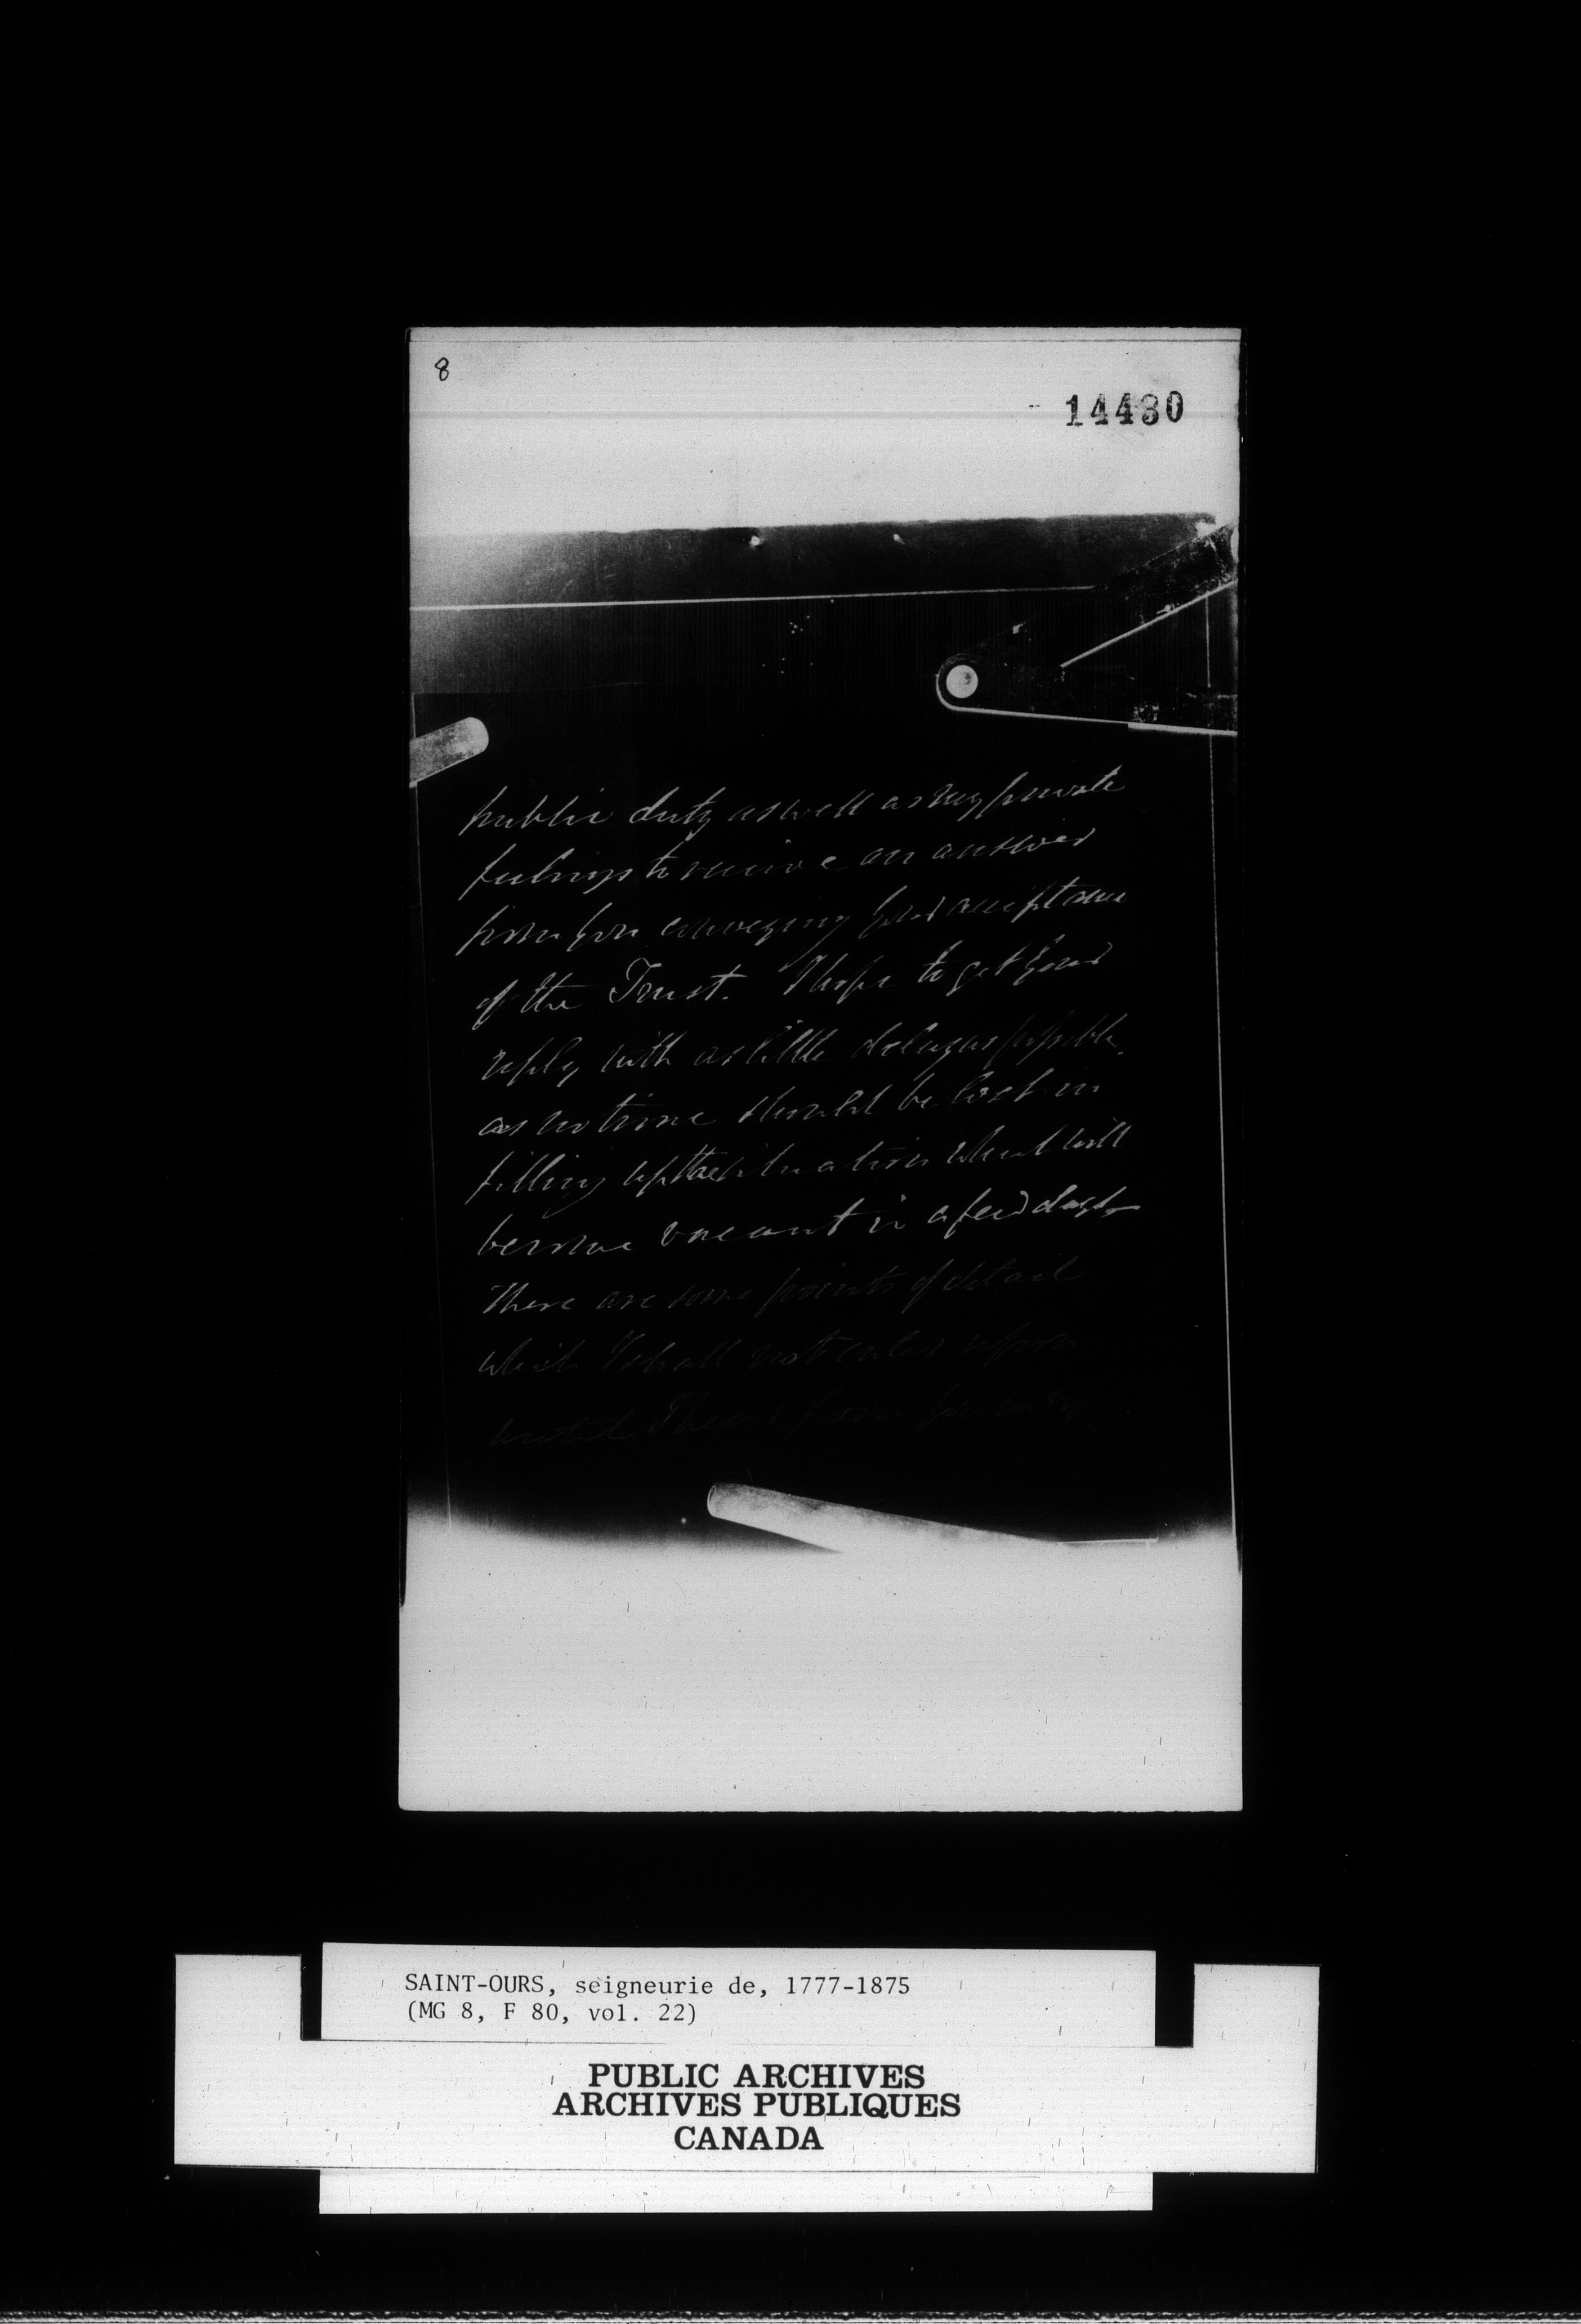 8
14480
public duty as well as my private
feelings to receive an answer
from you conveying your acceptance
of the Trust. I hope to get your
reply with as little delay as possible,
as no time should be lost in
filling up the situation which will
become vacant in a few days.
There are some points of detail
which I shall not enter upon
until I hear from you in reply
SAINT-OURS, seigneurie de, 1777-1875
(MG 8, F 80, vol. 22)
PUBLIC ARCHIVES
ARCHIVES PUBLIQUES
CANADA